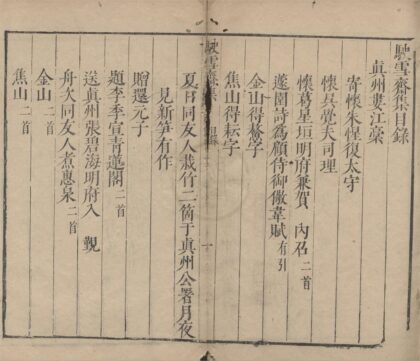 駛雪齋集目錄
真州婁江稾
寄懷朱惺復太守
懷吳覺夫司理
懷葛星垣明府兼賀 內召 二首
遂園詩為顧侍御儆韋賦 有引
金山得鰲字
焦山得耘字
駛雪齋集 目錄 一
夏日同友人栽竹二箇于真州公署月夜
見新笋有作
贈還元子
題李季宣青蓮閣 二首
送真州張碧海明府入 覲
舟次同友人煮惠泉 二首
金山 二首
焦山 二首